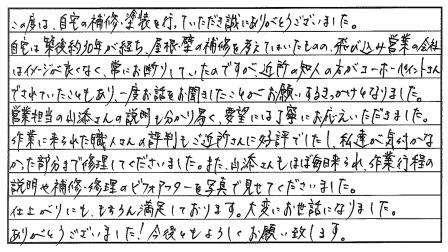 この度は、自宅の補修・塗装を行っていただき誠にありがとうございました。
自宅は築後約10年が経ち、屋根・壁の補修を考えてはいたものの、飛び込み営業の会社
はイメージが良くなく、常にお断りしていたのですが、近所の知人の方がユーホーペイントさん
でされていたこともあり、一度お話をお聞きしたことがお願いするきっかけとなりました。
営業担当の山添さんの説明も分かり易く、要望には丁寧にお応えいただきました。
作業に来られた職人さんの評判もご近所さんに好評でしたし、私達が気付かな
かった部分まで修理してくださいました。また、山添さんもほぼ毎日来られ、作業行程の
説明や補修・修理のビフォアフターを写真で見せてくださいました。
仕上がりにも、もちろん満足しております。大変にお世話になりました。
ありがとうございました！今後ともよろしくお願い致します。